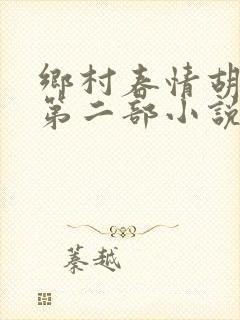 鄉村春情胡
第二部小說
蓁越